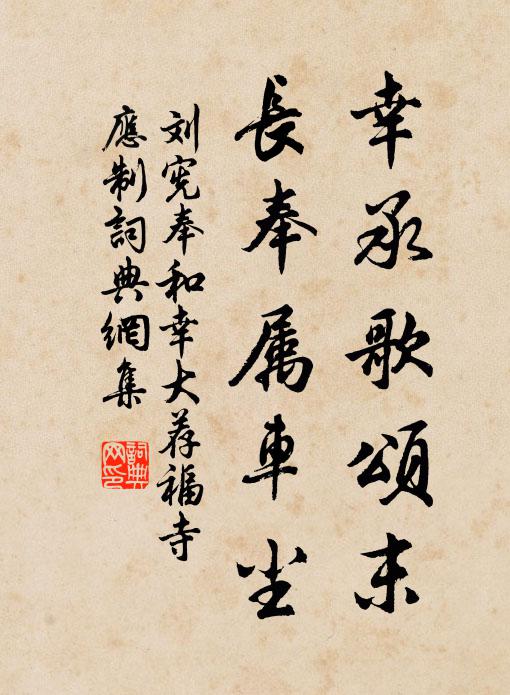 幸承歌頌末
長奉属車尘
刘宪奉和幸大荐福寺
應制詞典網集
詞典網印